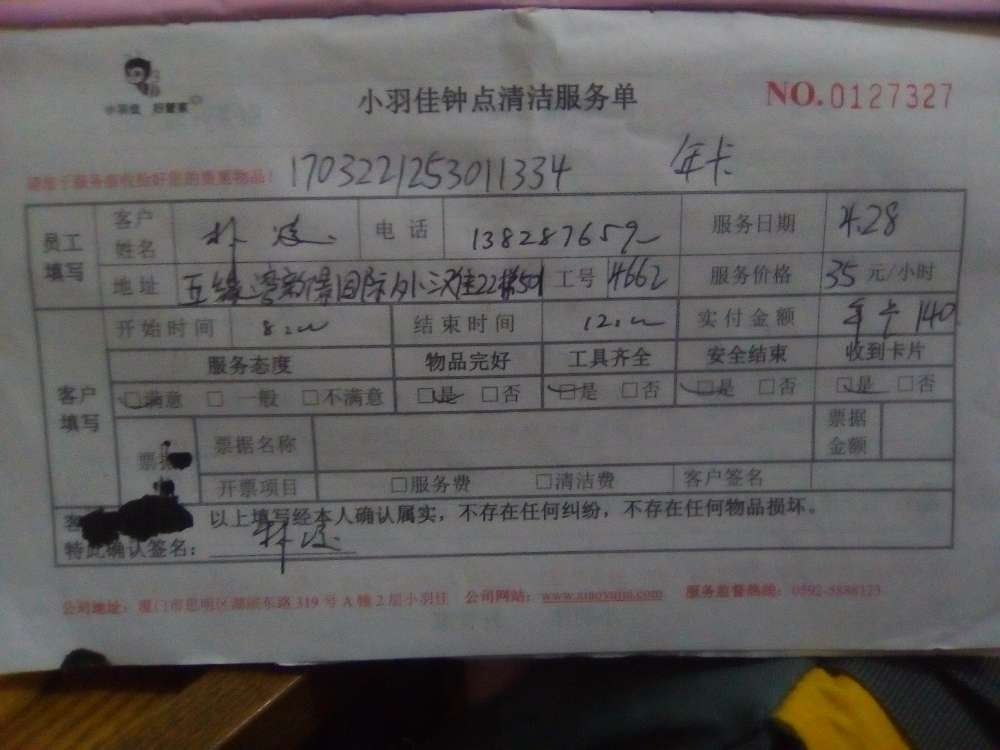 小羽佳 好管家
小羽佳钟点清洁服务单
NO.0127327
1703221253011334 年卡
员工填写 客户姓名 林 电话 服务日期 4.28
地址 五缘湾新景国际 工号 4662 服务价格 35 元/小时
客户填写 开始时间 8:00 结束时间 12:00 实付金额 年卡 140
服务态度 物品完好 工具齐全 安全结束 收到卡片
□满意 □一般 □不满意 □是 □否 □是 □否 □是 □否 □是 □否
票据 票据名称 票据金额
开票项目 □服务费 □清洁费 客户签名
以上填写经本人确认属实，不存在任何纠纷，不存在任何物品损坏。
特此确认签名： 林
公司地址：厦门市思明区湖滨东路 319 号 A 幢 2 层小羽佳 公司网站：www.xiaoyujia.com 服务监督热线：